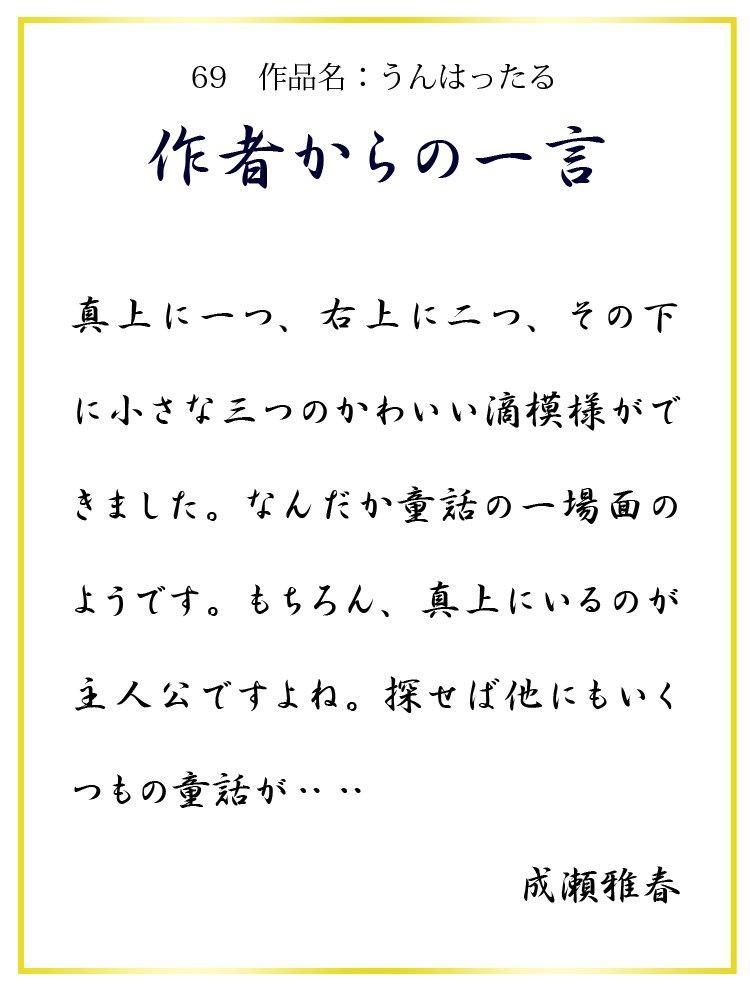 69　作品名：うんはったる
作者からの一言
真上に一つ、右上に二つ、その下
に小さな三つのかわいい滴模様がで
きました。なんだか童話の一場面の
ようです。もちろん、真上にいるのが
主人公ですよね。探せば他にもいく
つもの童話が‥‥
成瀬雅春